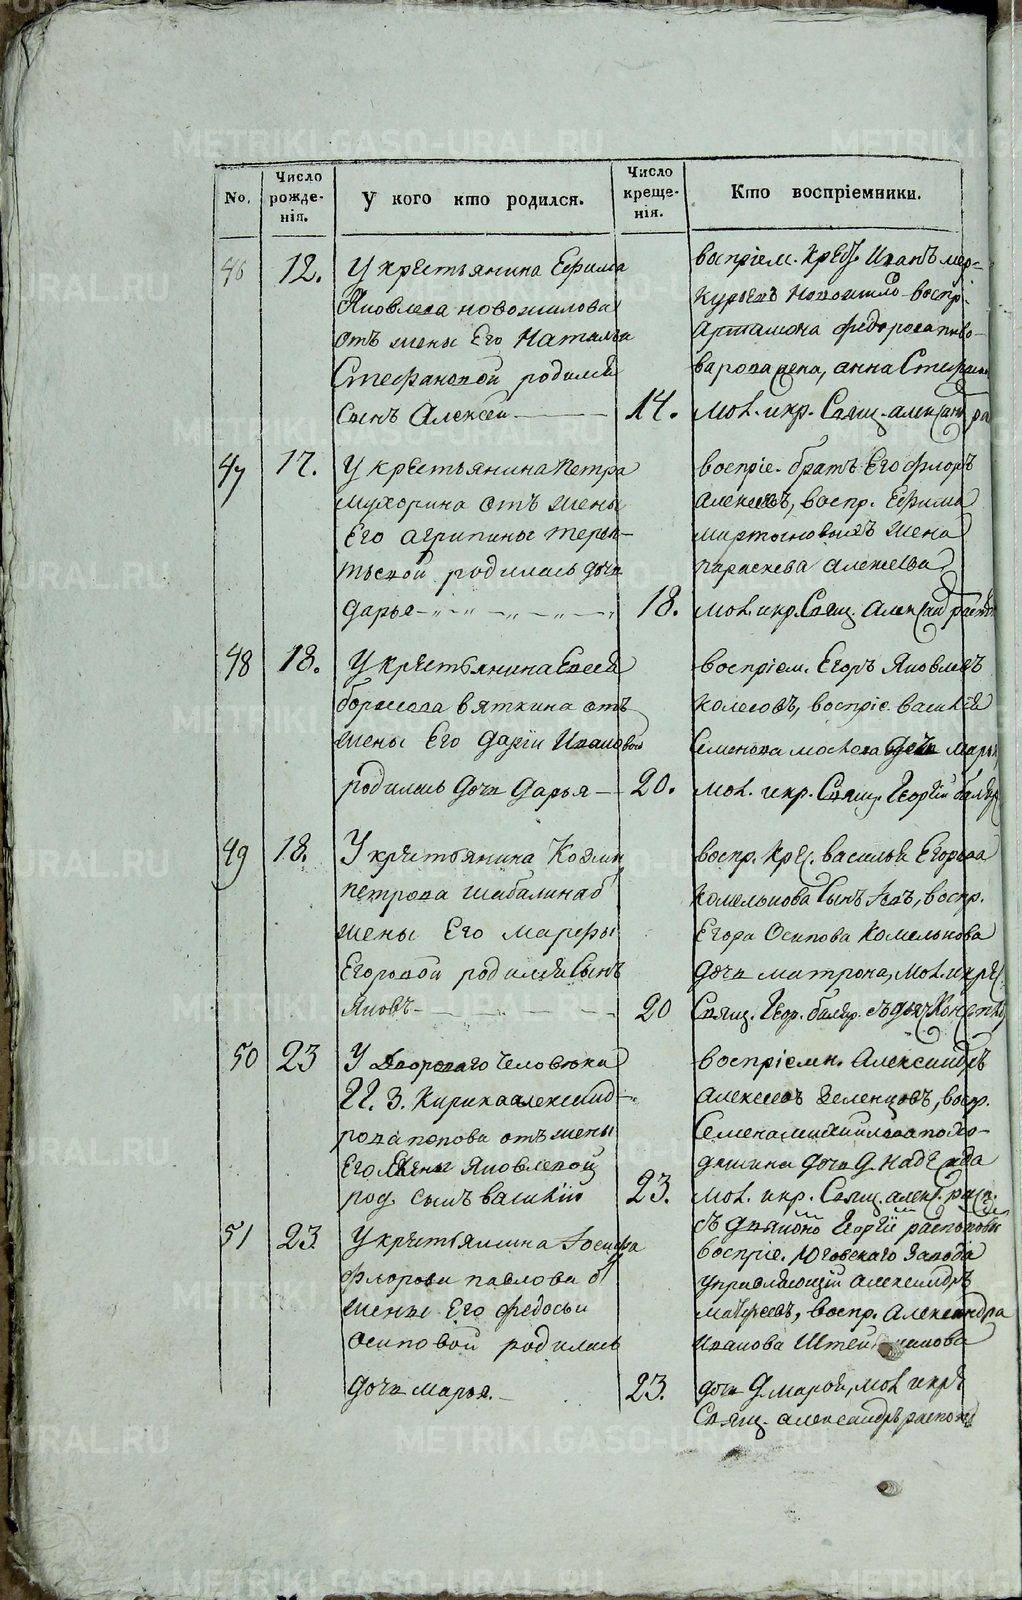 METRIKI.GASO-URAL.RU
No.
Число рожде-нія.
У кого кто родился.
Число креще-нія.
Кто воспріемники.
46
12.
У крестьянина Ефима
Яковлева новожилова
отъ жены Его Натальи
Стефановой родился
сынъ Алексей
14.
воспріем. крес. Иванъ мер-
курьевъ воспр.
Артамона федорова пиво-
варова жена, анна
мол. икр. Свящ. александ ра
47
17.
У крестьянина Петра
мухорина отъ жены
Его агрипины терен-
тьевой родилась дочь
дарья
18.
воспріе. братъ Его флоръ
алексеевъ, воспр. Ефима
мартыновыхъ жена
параскева алексеева
мол. икр. Свящ. Александ
48
18.
У крестьянина Евсея
борисова вяткина отъ
жены Его дарьи Ивановой
родилась дочь дарья
20.
воспріем. Егоръ Яковлевъ
колесовъ, воспріе. василья
Семенова дочь марья
мол. икр. Свящ. Георгій
49
18.
У крестьянина Козмы
петрова шабалина от
жены Его марфы
Егоровой родился сынъ
яковъ
20
воспр. крес. василья Егорова
комелькова сынъ воспр.
Егора Осипова комелькова
дочь матрона, мол. икрес.
Свящ. Геор.
50
23
У дворового человека
П. З. Кирика александ-
рова попова отъ жены
Его Яковлевой
род. сынъ василій
23.
воспріемн. Александръ
алексеевъ Зеленцовъ, воспр.
Семена михайлова
дочь д. надежда
мол. икр. Свящ. алекс.
съ дьякономъ Георгіемъ
51
23.
У крестьянина Іосифа
флорова павлова от
жены Его федосьи
осиповой родилась
дочь марья.
23.
воспріе. Юговскаго завода
управляющій александръ
матвеевъ, воспр. александра
иванова
дочь д. марья, мол. икр.
Свящ. александръ